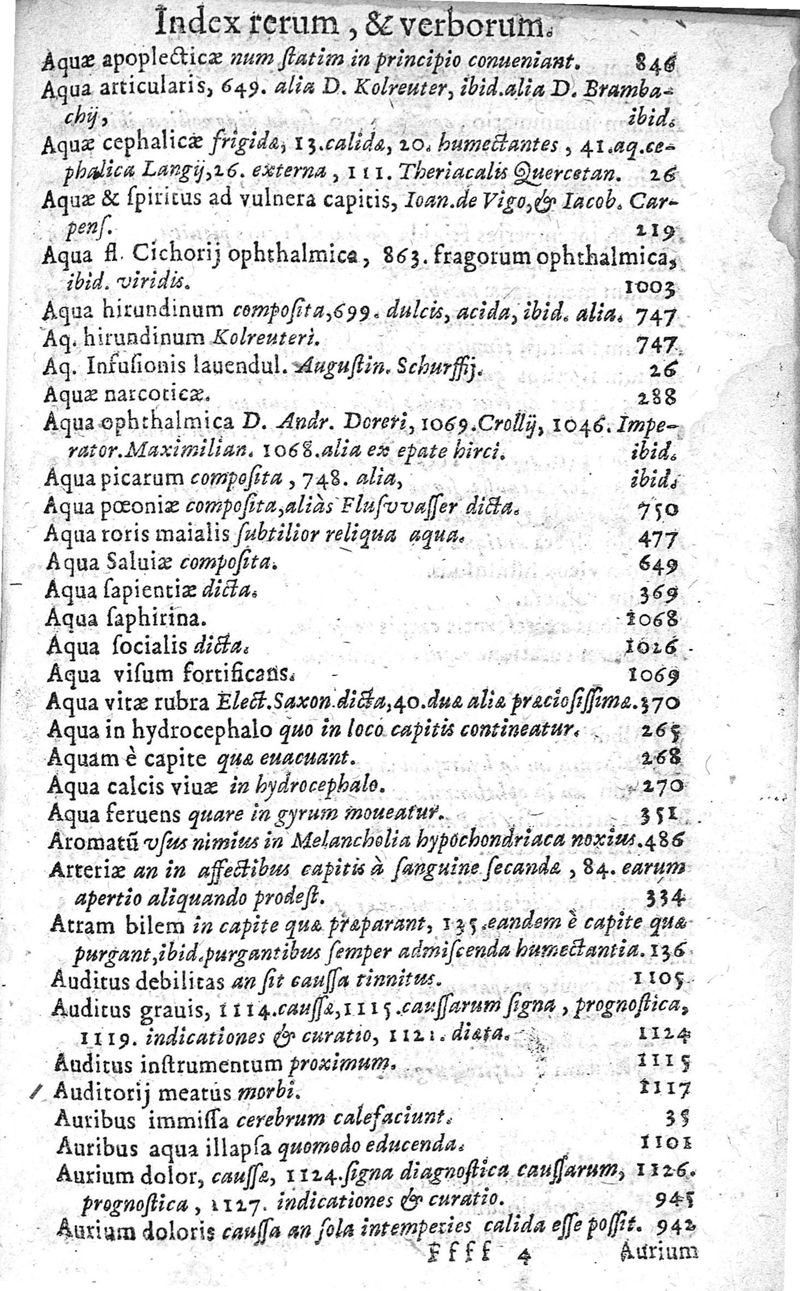 Index rerum, & verborum.
Aquæ apoplecticæ num ſtatim in principio conueniant. 846
Aqua articularis, 649. alia D. Kolreuter, ibid. alia D. Bramba-
chij, ibid.
Aquæ cephalicæ frigidæ, 13. calidæ, 20. humectantes, 41. aq. ce-
phalica Langij, 26. externa, 111. Theriacalis Quercetan. 26
Aquæ & ſpiritus ad vulnera capitis, Ioan. de Vigo, & Iacob. Car-
penſ. 219
Aqua fl. Cichorij ophthalmica, 863. fragorum ophthalmica,
ibid. viridis. 1003
Aqua hirundinum compoſita, 699. dulcis, acida, ibid. alia. 747
Aq. hirundinum Kolreuteri. 747
Aq. Infuſionis lauendul. Auguſtin. Schurffij. 26
Aquæ narcoticæ. 288
Aqua ophthalmica D. Andr. Doreri, 1069. Crollij, 1046. Impe-
rator. Maximilian. 1068. alia ex epate hirci. ibid.
Aqua picarum compoſita, 748. alia, ibid.
Aqua pœoniæ compoſita, aliàs Fluſvvaſſer dicta. 750
Aqua roris maialis ſubtilior reliqua aqua. 477
Aqua Saluiæ compoſita. 649
Aqua ſapientiæ dicta. 369
Aqua ſaphirina. 1068
Aqua ſocialis dicta. 1026
Aqua viſum fortificans. 1069
Aqua vitæ rubra Elect. Saxon. dicta, 40. duæ aliæ præcioſiſſimæ. 370
Aqua in hydrocephalo quo in loco capitis contineatur. 265
Aquam è capite quæ euacuant. 268
Aqua calcis viuæ in hydrocephalo. 270
Aqua feruens quare in gyrum moueatur. 351
Aromatū vſus nimius in Melancholia hypochondriaca noxius. 486
Arteriæ an in affectibus capitis à ſanguine ſecandæ, 84. earum
apertio aliquando prodeſt. 334
Atram bilem in capite quæ præparant, 135. eandem è capite quæ
purgant, ibid. purgantibus ſemper admiſcenda humectantia. 136
Auditus debilitas an ſit cauſſa tinnitus. 1105
Auditus grauis, 1114. cauſſæ, 1115. cauſſarum ſigna, prognoſtica,
1119. indicationes & curatio, 1121. diæta. 1124
Auditus inſtrumentum proximum. 1115
Auditorij meatus morbi. 1117
Auribus immiſſa cerebrum calefaciunt. 35
Auribus aqua illapſa quomodo educenda. 1101
Aurium dolor, cauſſæ, 1124. ſigna diagnoſtica cauſſarum, 1126.
prognoſtica, 1127. indicationes & curatio. 945
Aurium doloris cauſſa an ſola intemperies calida eſſe poſſit. 942
Ffff 4 Aurium